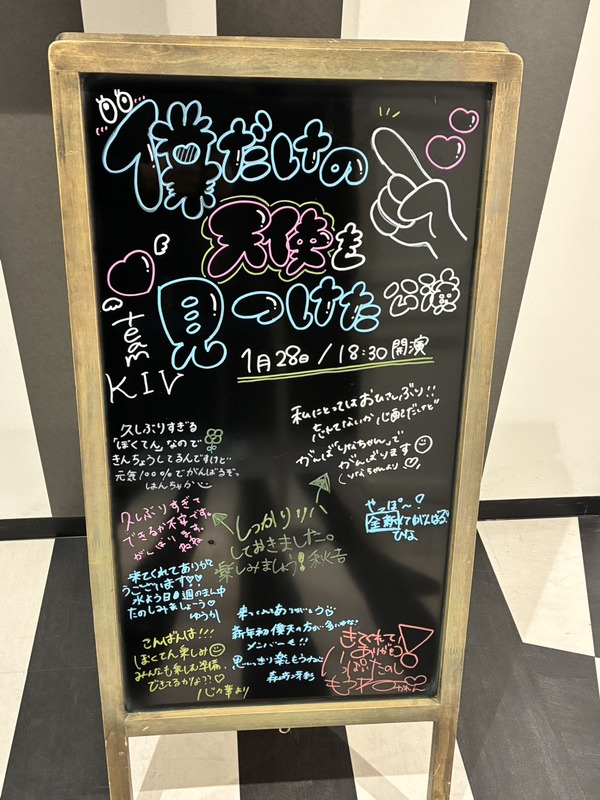 僕だけの
天使を
見つけた 公演
team
KIV
1月28日/18:30開演
私にとってはおひさしぶり!!
忘れてないか心配だけど
がんば「りなちゃん」で
がんばります
(りなちゃんより♡)
久しぶりすぎる
「ぼくてん」なので
きんちょうしてるんですけど…
元気100%でがんばるぞっ
はんちゃか
久しぶりすぎて
できるか不安です。
がんばります。
しっかりリハ
しておきました。
楽しみましょう! 秋吉
やっぽ~!
全力でがんばる
ひな
来てくれてありがと
うございます♡♡
水よう日!週のまん中
たのしみましょーう♡
ゆうか
来てくれてありがとう
新年初僕天の方が多いかな?
メンバーも!!
思いっきり楽しもうね
きてくれて
ありがとう!
こんばんは!!!
ぼくてん楽しみ
みんなも楽しむ準備
できてるかな??♡
心々華より